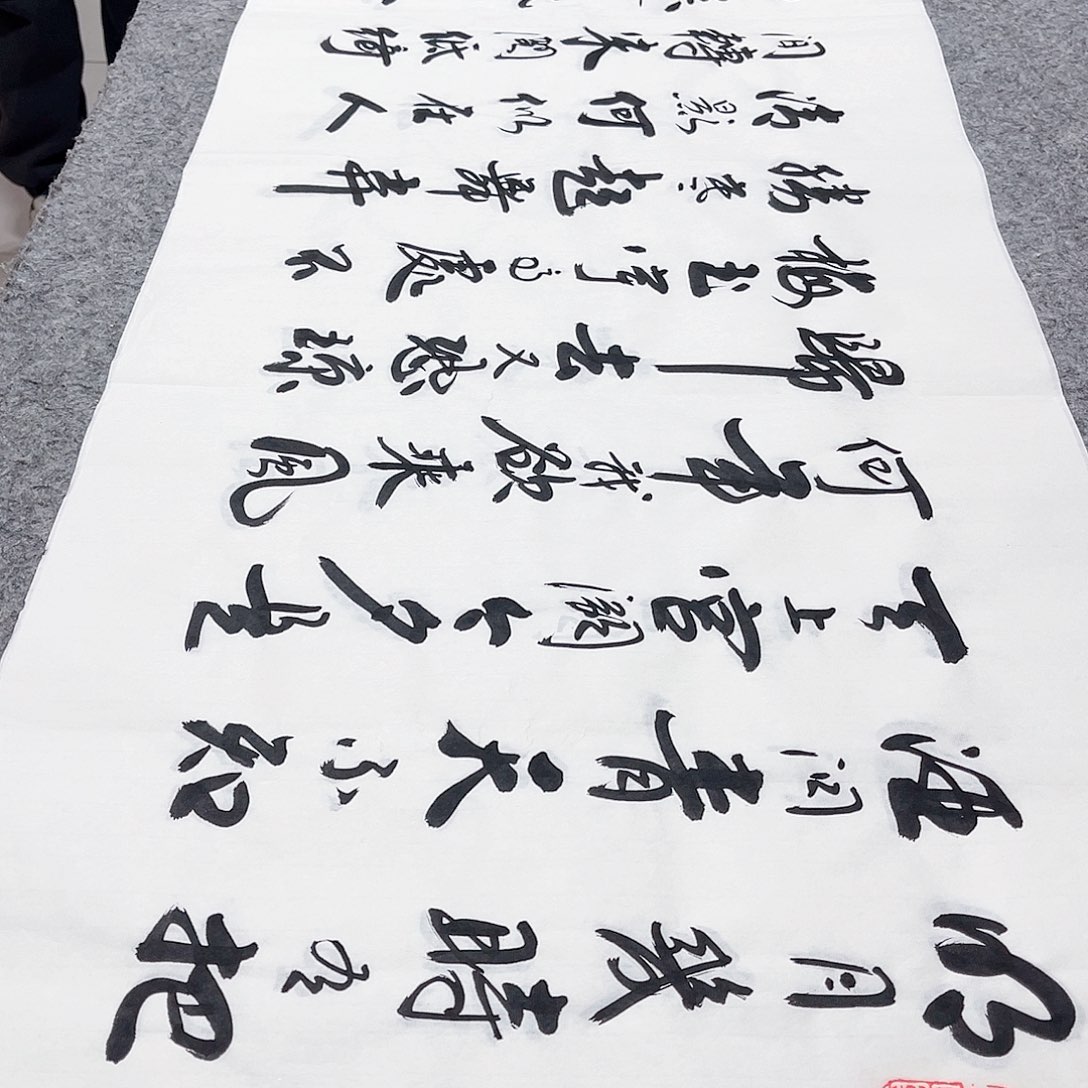 明月幾時有把
酒問青天不知
天上宮闕今夕是
何年我欲乘風
歸去又恐琼
樓玉宇高處不
勝寒起舞弄
清影何似在人
間轉朱閣低綺